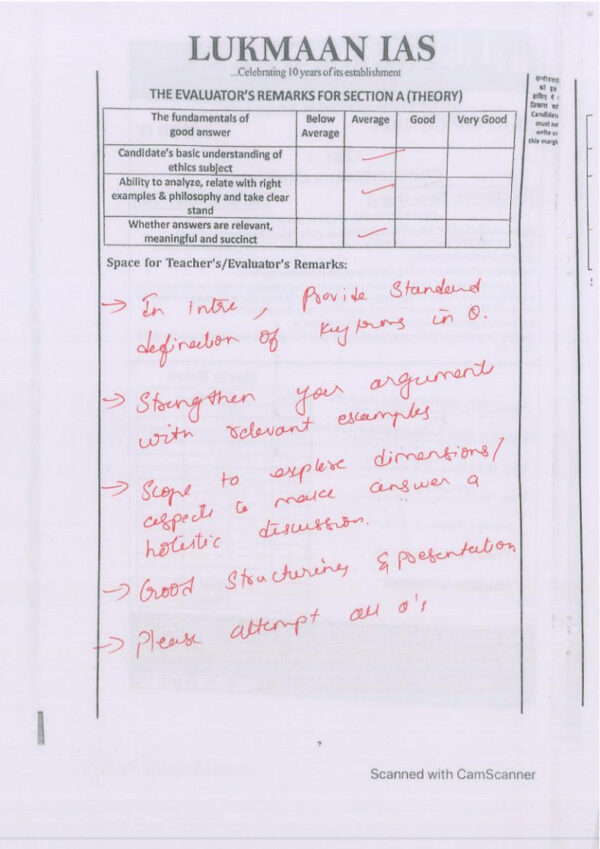 LUKMAAN IAS
...Celebrating 10 years of its establishment
THE EVALUATOR'S REMARKS FOR SECTION A (THEORY)
The fundamentals of good answer | Below Average | Average | Good | Very Good
Candidate's basic understanding of ethics subject
Ability to analyze, relate with right examples & philosophy and take clear stand
Whether answers are relevant, meaningful and succinct
Space for Teacher's/Evaluator's Remarks:
→ In intro, Provide Standard
of key terms in Q.
→ Strengthen your arguments
with relevant examples
→ Scope to explore dimensions/
aspects to make answer a
holistic discussion.
→ Good Structuring & presentation
→ Please attempt all Q's
Candidate
must no
write or
this margi
Scanned with CamScanner